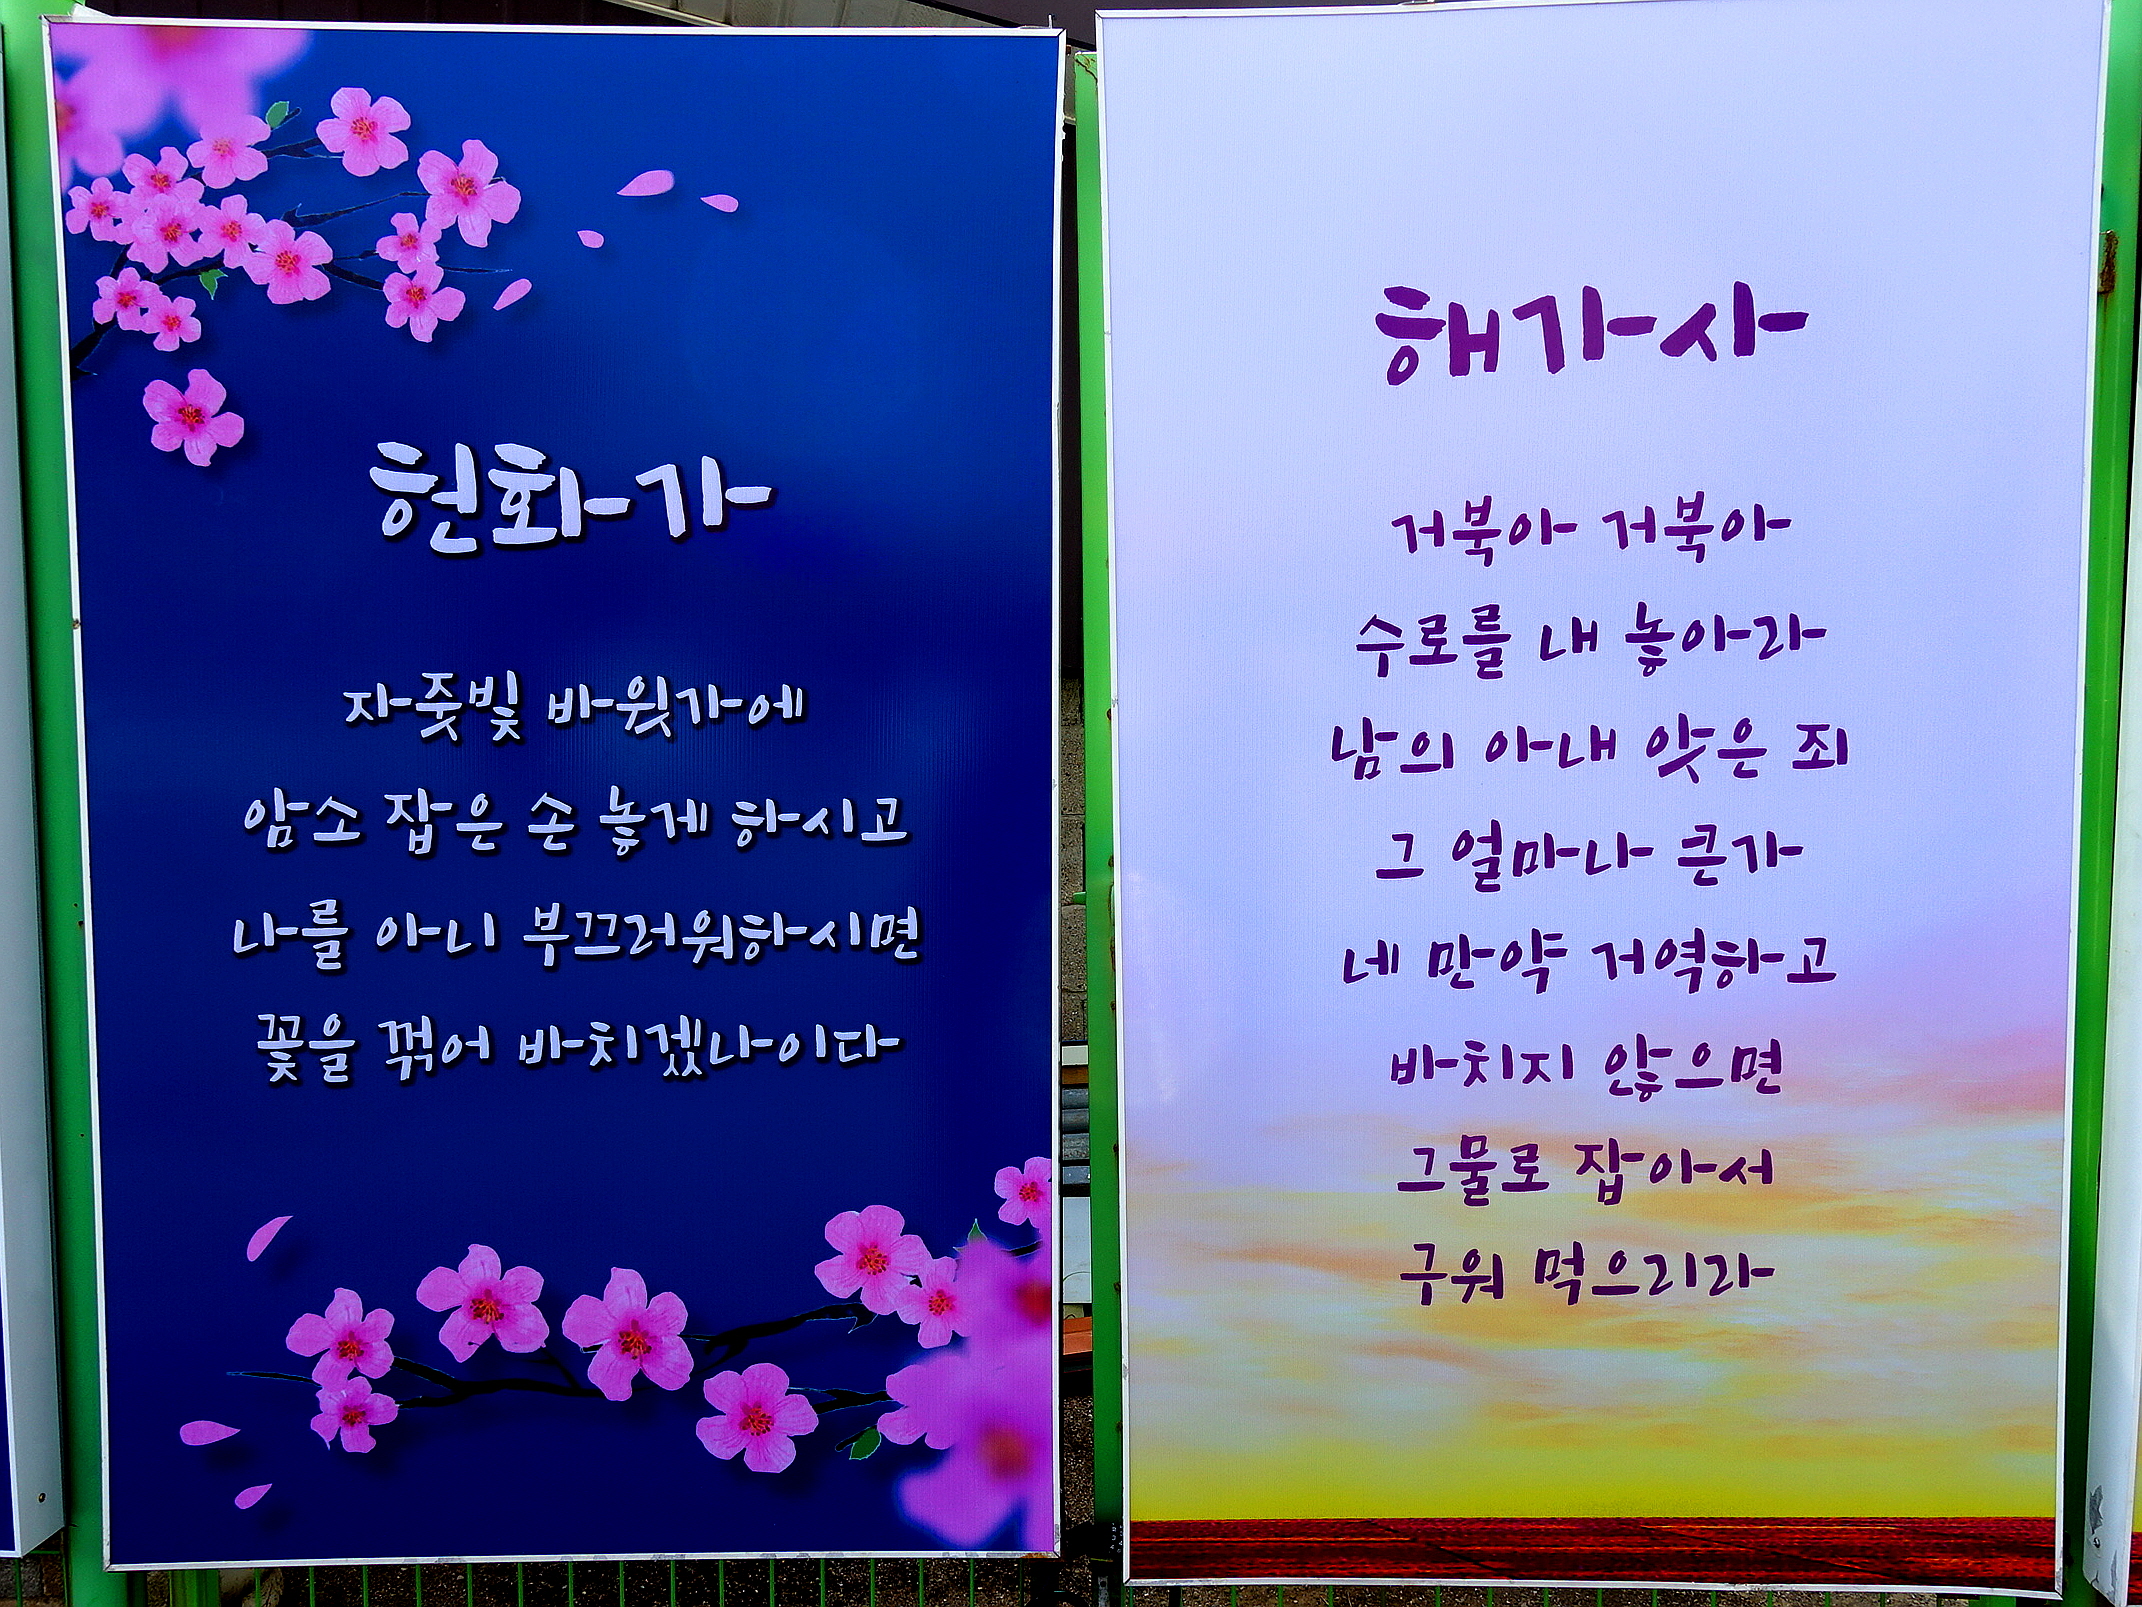 헌화가
자줏빛 바윗가에
암소 잡은 손 놓게 하시고
나를 아니 부끄러워하시면
꽃을 꺾어 바치겠나이다
해가사
거북아 거북아
수로를 내 놓아라
남의 아내 앗은 죄
그 얼마나 큰가
네 만약 거역하고
바치지 않으면
그물로 잡아서
구워 먹으리라